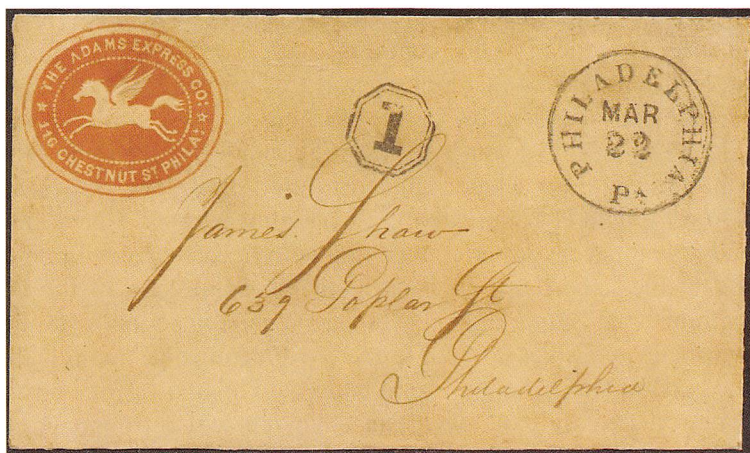 THE ADAMS EXPRESS CO:
116 CHESTNUT ST PHILA:
1
PHILADELPHIA
MAR
22
Pa
James Shaw
639 Poplar St
Philadelphia